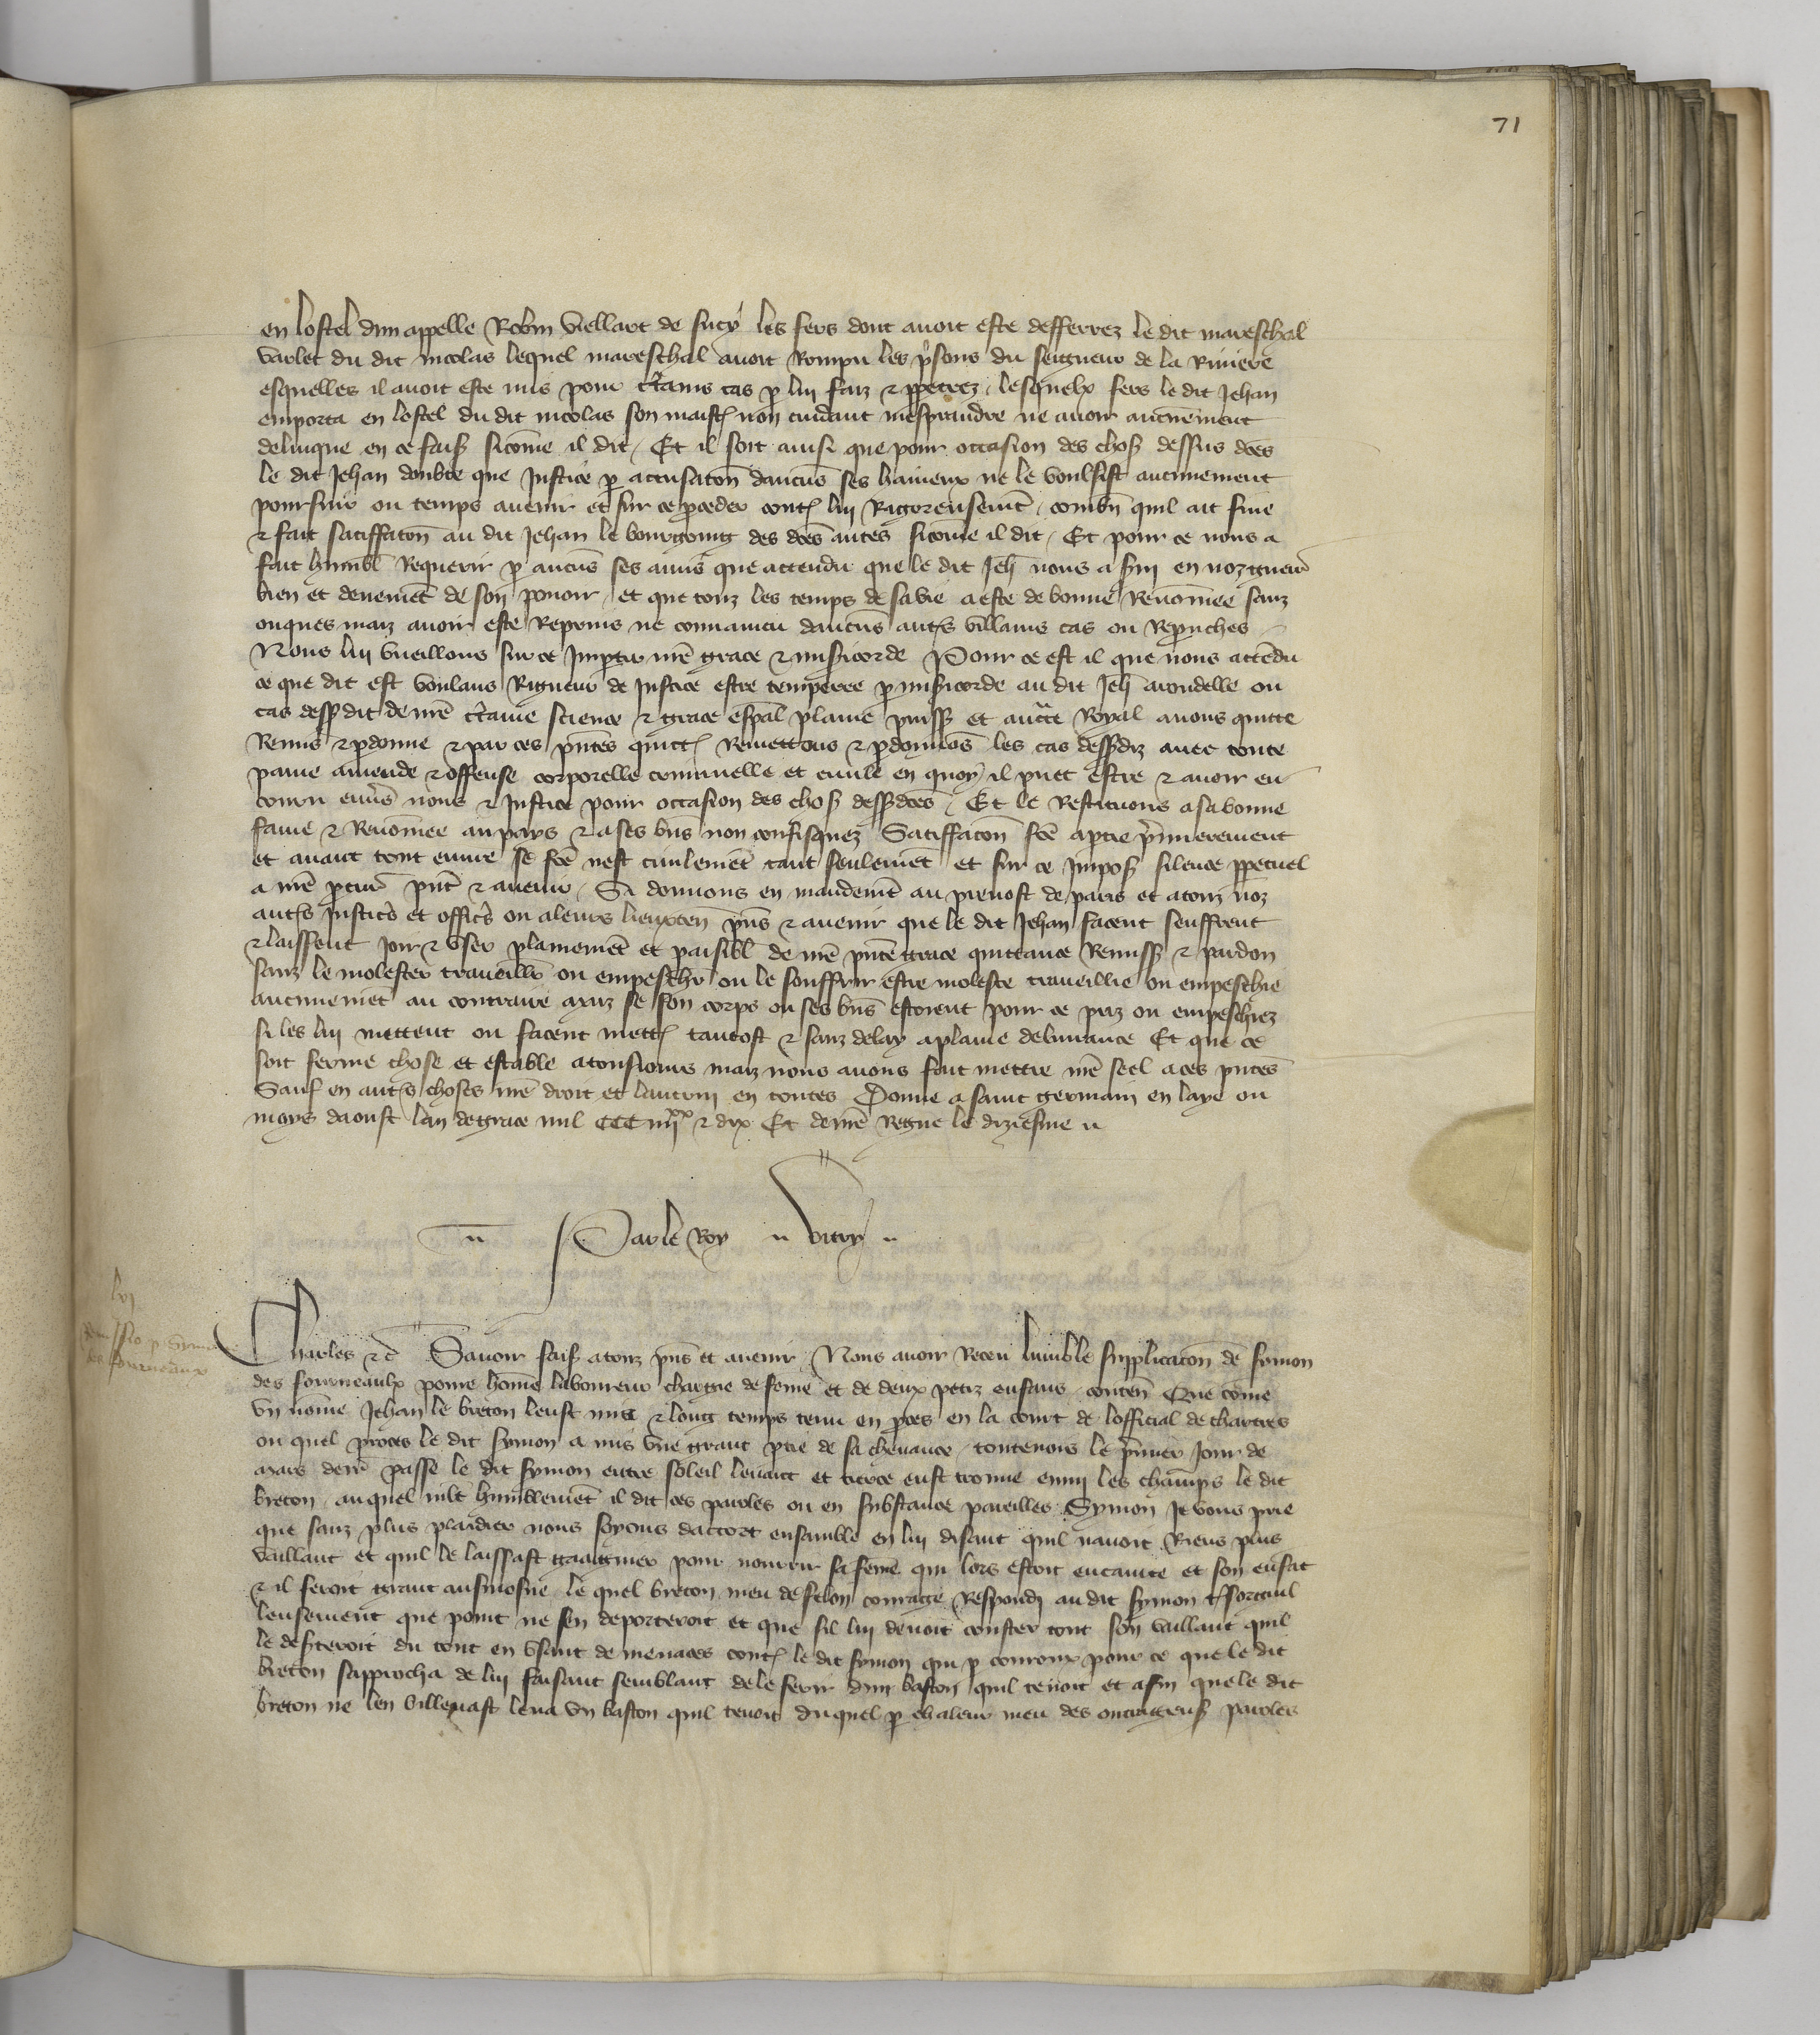 71
en lostel dun appelle Robin Viellart de sucy les fers dont avoit este defferrez le dit mareschal
varlet du dit nicolas lequel mareschal avoit Rompu les psons du seigneur de la Riviere
esquelles il avoit este mis pour ctains cas p lui faiz & ppetrez lesquelx fers le dit Jehan
emporta en lostel du dit nicolas son maist non cuidant mesprandre ne avoir aucunement
delinque en ce faisst sicome il dit Et il soit ainsi que pour occasion des chos dessus des
le dit Jehan doubte que Justice p accusaton daucus ses haineux ne le voulsist aucunement
poursuir ou temps avenir et sur ce pceder cont lui Rigoreusemt combn quil ait fine
& fait satiffaton au dit Jehan le bourgoing des des autes sicome il dit Et pour ce nous a
fait humbl Requerir p aucus ses amis que attendu que le dit Jeh nous a svy en noz guerr
bien et deuemet de son povoir et que touz les temps de sa vie a este de bonne Renomee sanz
onques maiz avoir este Reprins ne convaincu daucus auts villains cas ou Reprouches
Nous lui vueillons sur ce Impartir nre grace & misicorde Pour ce est il que nous attedu
ce que dit est voulans Rigueur de Justice estre temperee p misicorde au dit Jeh arondelle ou
cas dessdit de nre ctaine science & grace espal plaine puiss et auctte Royal avons quitte
Remis & pdonne & par ces pntes quitt Remettons & pdonnos les cas dessdiz avec toute
paine amende & offense corporelle criminelle et civile en quoy il puet estre & avoir en
couru envs nous & Justice pour occasion des chos dessdes Et le Restituons a sa bonne
fame & Renomee au pays & a ses bns non confisquez Satiffacon fce a ptie primierement
et avant tout euvre se fce nest civilemet tant seulemet et sur ce Impos silence ppetuel
a nre pcur pnt & avenir Si donnons en mandemt au prevost de paris et a touz noz
auts Justics et offics ou a leurs lieuxten pns & avenir que le dit Jehan facent seuffrent
& laissent Joir & vser plainemet et paisibl de nre pnte grace quittance Remiss & pardon
sanz le molester traveillr ou empeschr ou le souffrir estre moleste traveillie ou empeschie
aucunemet au contraire maiz se son corps ou ses bns estoient pour ce priz ou empeschiez
si les lui mettent ou facent mett tantost & sanz delay a plaine delivrance Et que ce
soit ferme chose et estable a tousiours maiz nous avons fait mettre nre seel a ces pntes
Sauf en auts choses nre droit et lautruy en toutes Donne a saint germain en laye ou
moys daoust lan de grace mil CCC iiijxx & dix Et de nre Regne le diziesme
Par le Roy vitry
lvj
Remissio p Symone
des fourneaux
Charles &c Savoir fais a touz pns et avenir Nous avoir Receu lumble supplicacon de Symon
des fourneaulx povre home laboureur chargie de feme et de deux petiz enfans conten Que come
vn nome Jehan le breton leust mis & long temps tenu en pces en la court de lofficial de chartres
ou quel proces le dit symon a mis vne grant ptie de sa chevance toutevois le primier Jour de
mars derr passe le dit symon entre soleil levant et tierce eust trouve emmi les champs le dit
breton auquel mlt humblemet il dit ces paroles ou en substance pareilles Symon Je vous prie
que sanz plus plaidier nous soyons daccort ensamble en lui disant quil navoit Riens plus
vaillant et quil le laissast gaaigner pour nourrir sa feme qui lors estoit encainte et son enfat
& il feroit grant ausmosne le quel breton meu de felon courage Respondi au dit symon
leusement que point ne sen deporteroit et que sil lui devoit couster tout son vaillant quil
le desteroit du tout en vsant de menaces cont le dit symon qui p courroux pour ce que le dit
breton sapproucha de lui faisant semblant de le ferir dun baston quil tenoit et afin que le dit
breton ne len villenast leva vn baston quil tenoit duquel p chaleur meu des oultrageus paroles